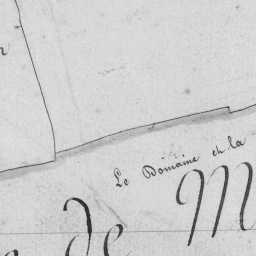 Le Domaine et la
de M